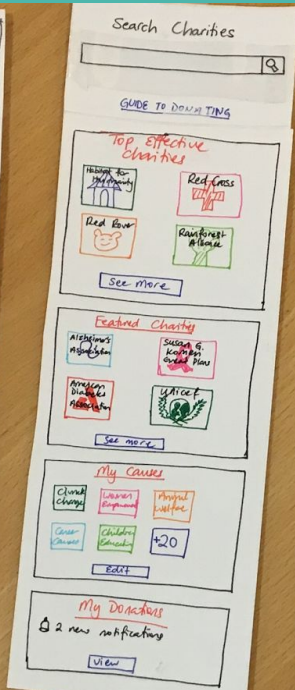 Search Charities
GUIDE TO DONATING
Top Effective
Charities
Habitat for
Humanity
Red Cross
Red Rover
Rainforest
See more
Featured Charities
Alzheimer's
Association
Susan G.
Komen
Great Plains
American
Diabetes
Association
Unicef
See more
My Causes
Climate
Change
Women
Empowerment
Animal
Welfare
Cancer
Children
Education
+20
Edit
My Donations
2 new notifications
View